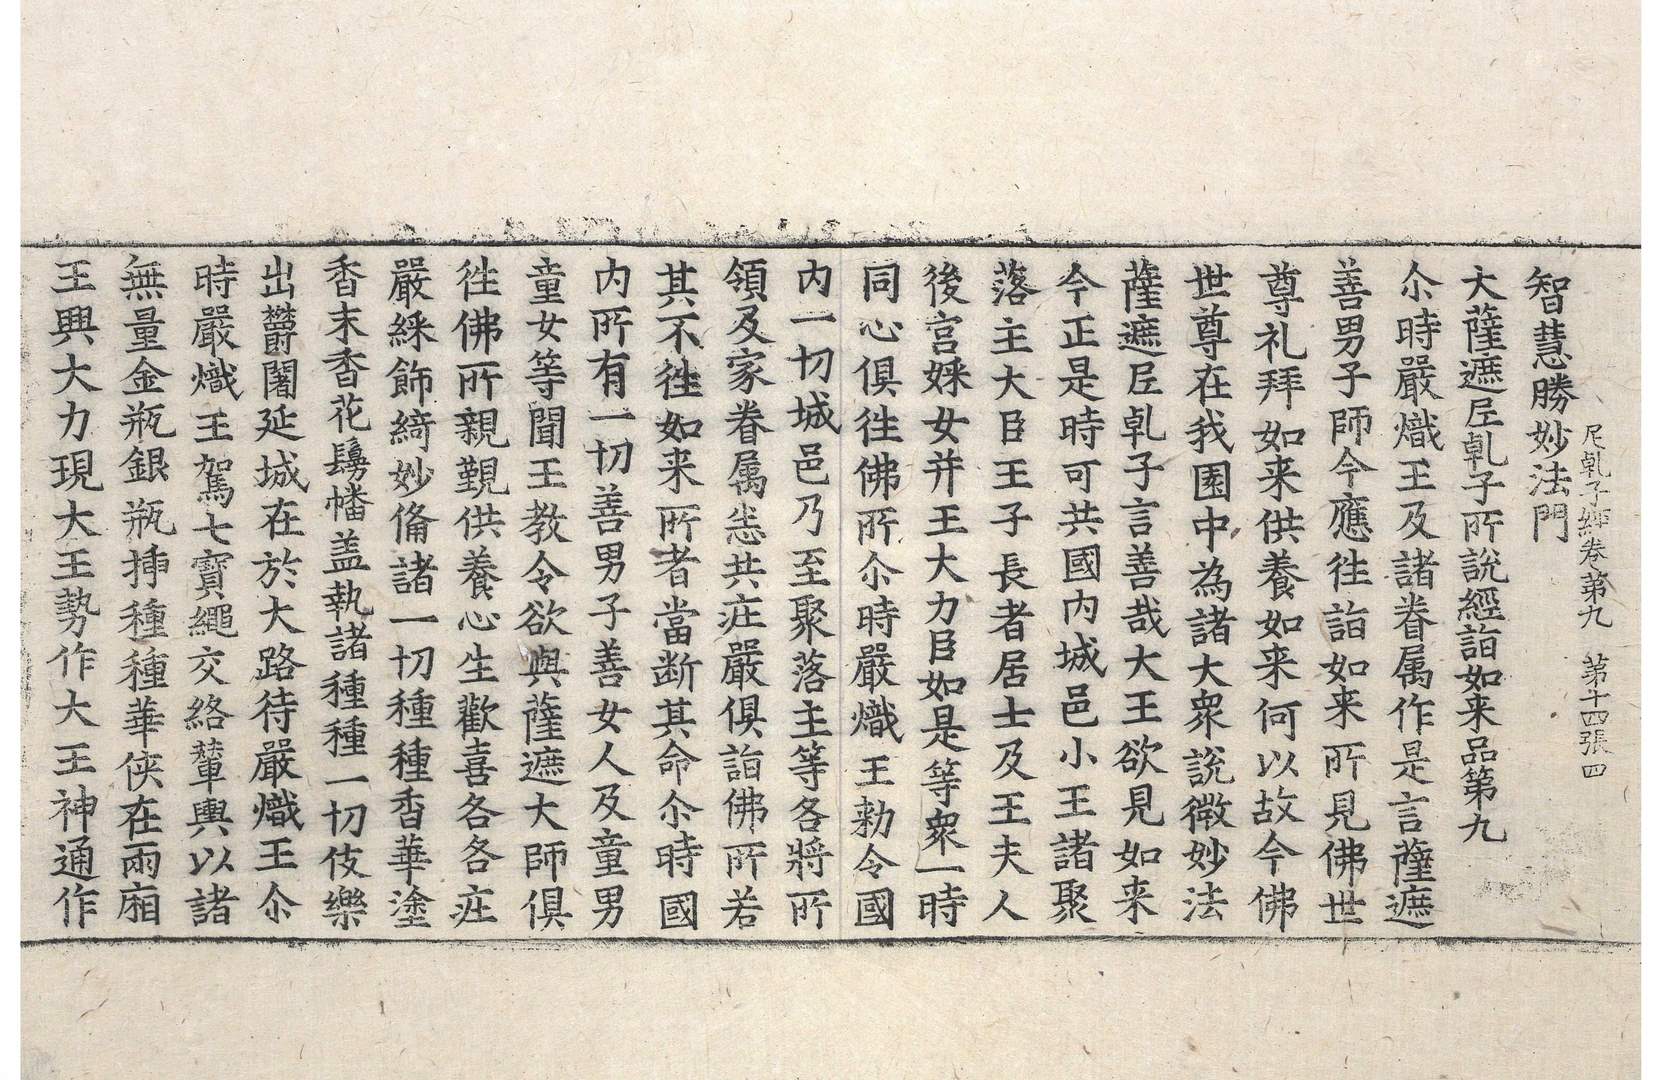 尼乹子經卷第九　第十四張　四
智慧勝妙法門
大薩遮𡰱乹子所說經詣如来品第九
尒時嚴熾王及諸眷属作是言薩遮
善男子師今應徃詣如来所見佛世
尊礼拜如来供養如来何以故今佛
世尊在我國中為諸大衆說微妙法
薩遮𡰱乹子言善哉大王欲見如来
今正是時可共國內城邑小王諸聚
落主大臣王子長者居士及王夫人
後宮婇女并王大力臣如是等衆一時
同心俱徃佛所尒時嚴熾王勑令國
內一切城邑乃至聚落主等各將所
領及家眷属悉共疰嚴俱詣佛所若
其不徃如来所者當断其命尒時國
內所有一切善男子善女人及童男
童女等聞王教令欲與薩遮大師俱
徃佛所親觐供養心生歡喜各各疰
嚴綵飾綺妙俻諸一切種種香華塗
香末香花鬘幡盖執諸種種一切伎樂
出欝闍延城在於大路待嚴熾王尒
時嚴熾王駕七寶繩交絡輦輿以諸
無量金瓶銀瓶揷種種華俠在兩廂
王興大力現大王勢作大王神通作